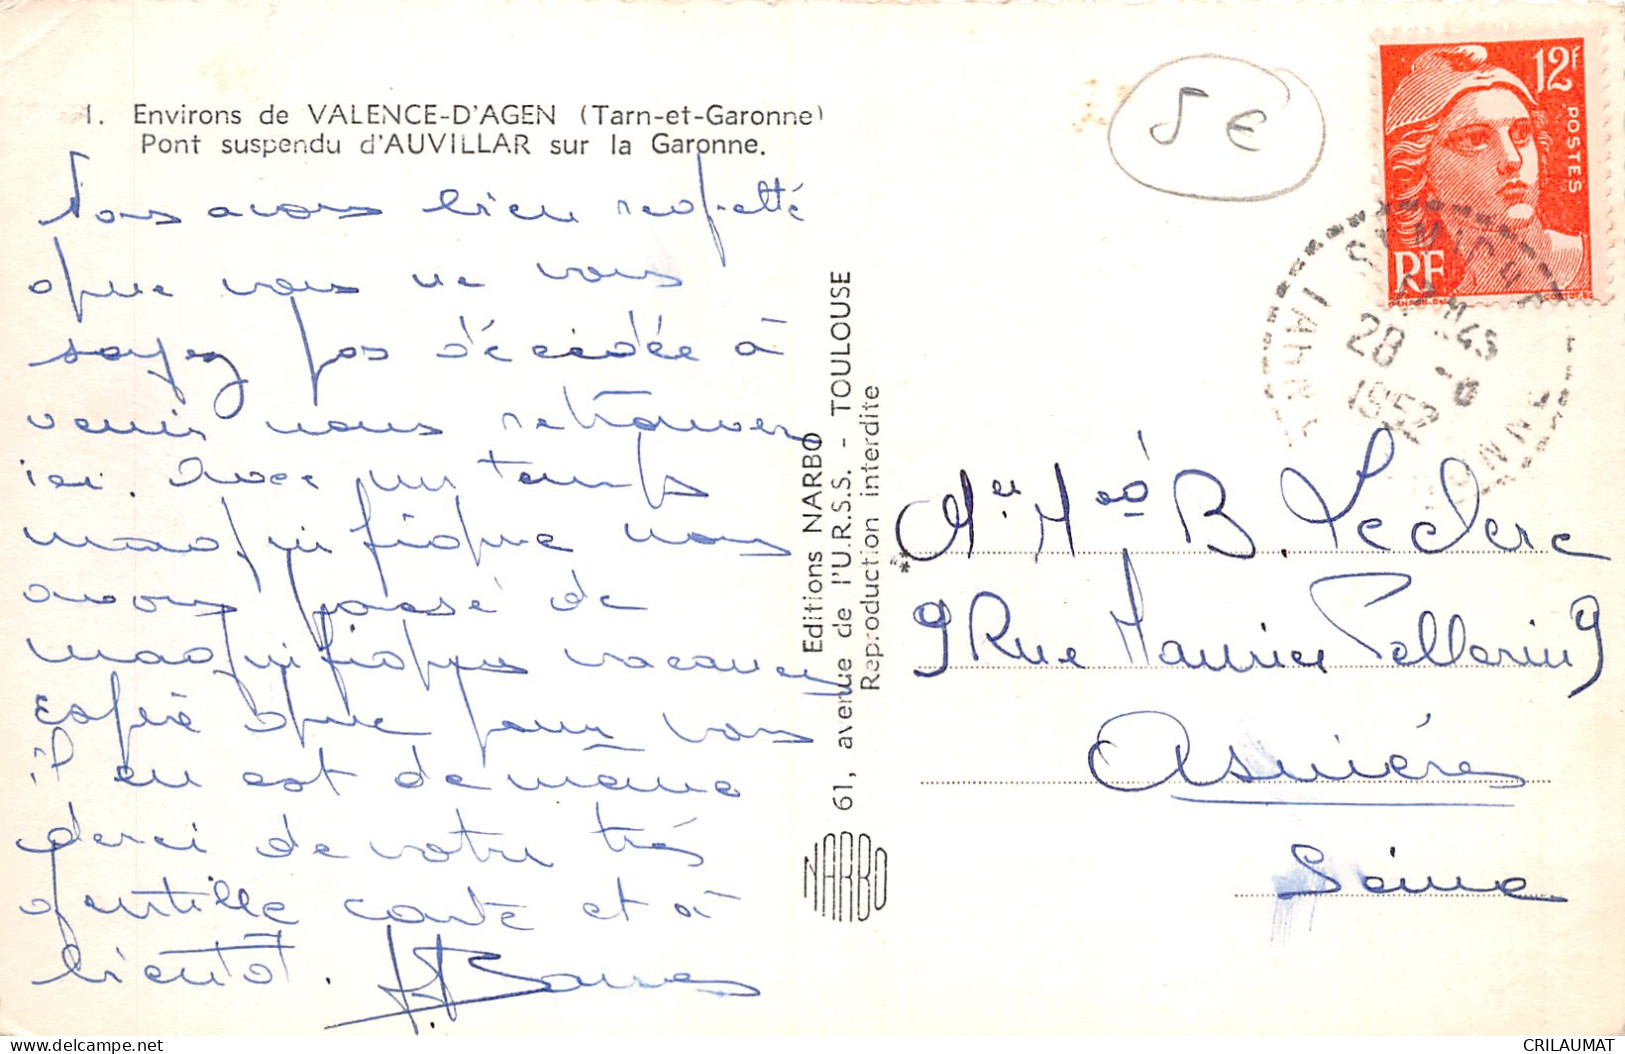 1. Environs de VALENCE-D'AGEN (Tarn-et-Garonne)
Pont suspendu d'AUVILLAR sur la Garonne.
Nous avons bien regretté
que vous ne vous
soyez pas décidée à
venir nous retrouver
ici. Avec un temps
magnifique nous
avons passé de
magnifiques vacances
espère que pour vous
il en est de même
Merci de votre très
gentille carte et à
bientôt.
Editions NARBO
61, avenue de l'U.R.S.S. - TOULOUSE
Reproduction interdite
NARBO
5 €
12F
POSTES
RF
ST MICHEL
28 -8
1952
TARN
GARONNE
B. Leclerc
9 Rue Maurice Pellerin 9
Asnières
Seine
CRILAUMAT